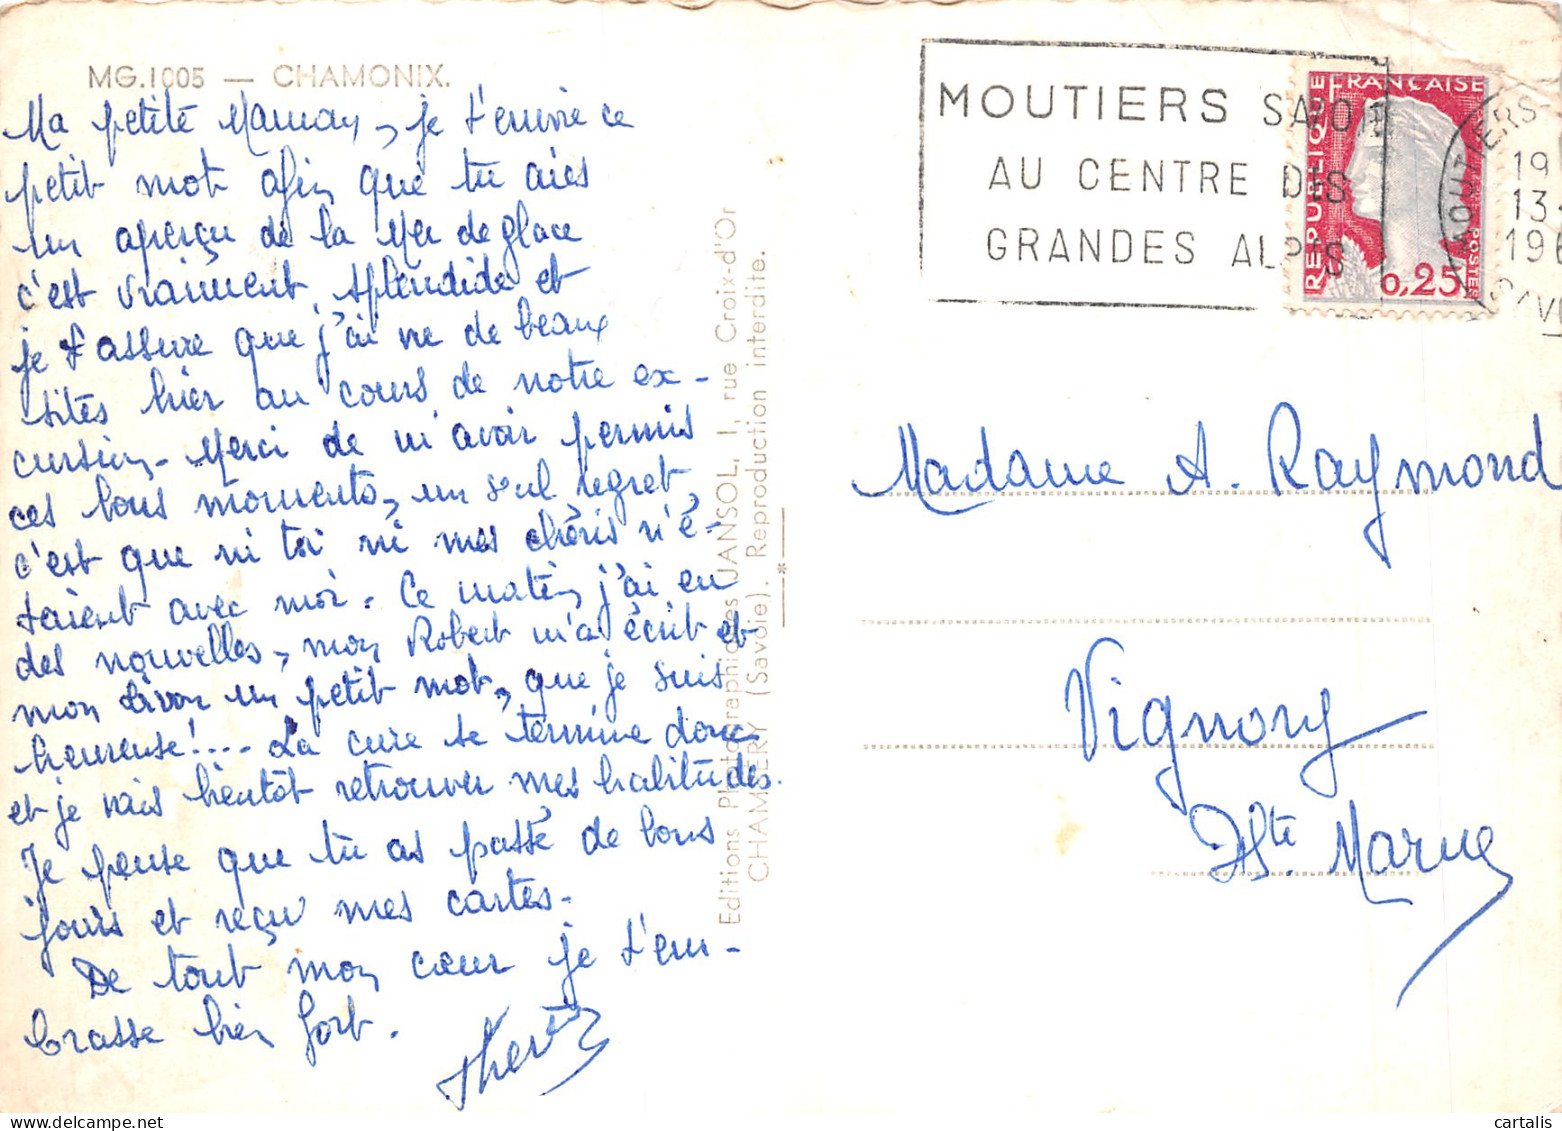 MG.1005 — CHAMONIX.
Ma petite Maman, je t'envoie ce
petit mot afin que tu aies
un aperçu de la Mer de glace
c'est vraiment splendide et
je t'assure que j'ai vu de beaux
sites hier au cours de notre ex-
cursion. Merci de m'avoir permis
ces bons moments, un seul regret
c'est que ni toi ni mes chéris n'é-
taient avec moi. Ce matin j'ai eu
des nouvelles, mon Robert m'a écrit et
mon un petit mot, que je suis
heureuse!... La cure se termine donc
et je vais bientôt retrouver mes habitudes.
Je pense que tu as passé de bons
jours et reçu mes cartes.
De tout mon cœur je t'em-
brasse bien fort.
Editions Photographiques JANSOL, 1, rue Croix-d'Or
CHAMBÉRY (Savoie). Reproduction interdite.
MOUTIERS SAVOIE
AU CENTRE DES
GRANDES ALPES
REPUBLIQUE FRANÇAISE
POSTES
0,25
MOUTIERS
19
13
196
Madame A. Raymond
Vignory
Hte Marne
cartalis